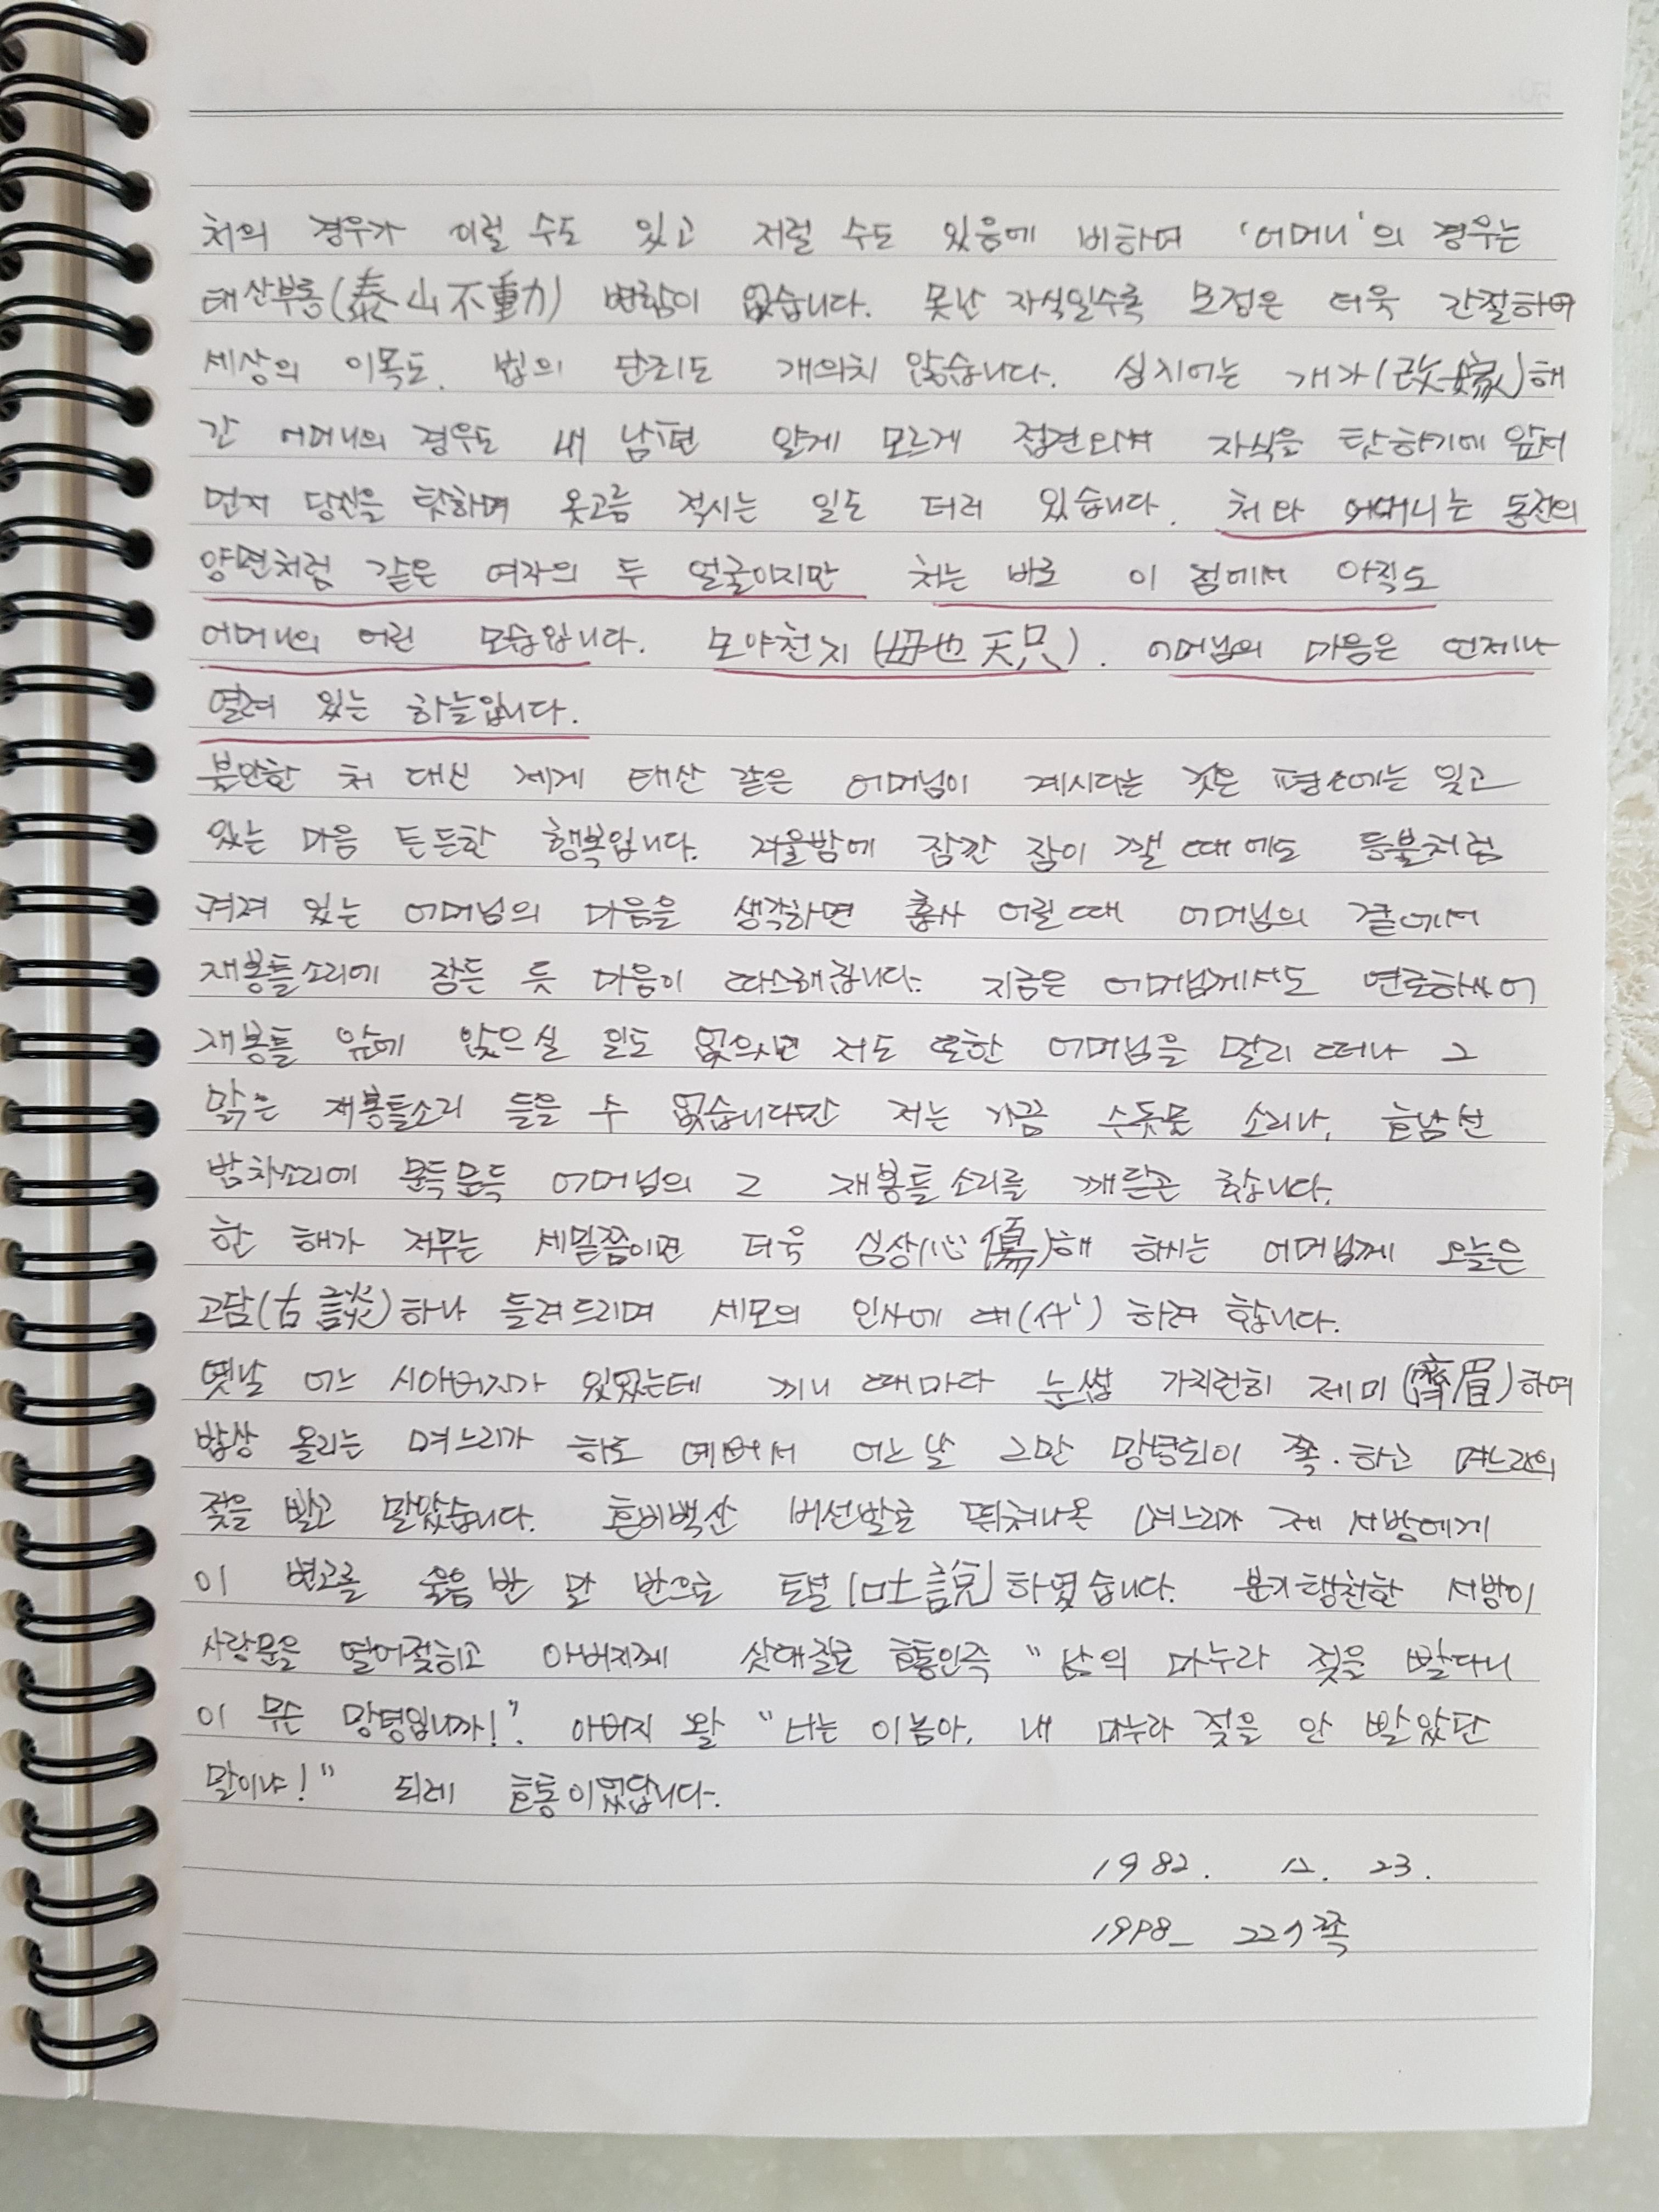 처의 경우가 이럴 수도 있고 저럴 수도 있음에 비하여 '어머니'의 경우는
태산부동(泰山不動) 변함이 없습니다. 못난 자식일수록 모정은 더욱 간절하여
세상의 이목도, 법의 단죄도 개의치 않습니다. 심지어는 개가(改嫁)해
간 어머니의 경우도 새 남편 알게 모르게 접견와서 자식을 탓하기에 앞서
먼저 당신을 탓하며 옷고름 적시는 일도 더러 있습니다. 처와 어머니는 동전의
양면처럼 같은 여자의 두 얼굴이지만 처는 바로 이 점에서 아직도
어머니의 어린 모습입니다. 모야천지(母也天只). 어머님의 마음은 언제나
열려 있는 하늘입니다.
불안한 처 대신 제게 태산 같은 어머님이 계시다는 것은 평소에는 잊고
있는 마음 든든한 행복입니다. 겨울밤에 잠깐 잠이 깰 때에도 등불처럼
켜져 있는 어머님의 마음을 생각하면 흡사 어릴 때 어머님의 곁에서
재봉틀소리에 잠든 듯 마음이 따스해집니다. 지금은 어머님께서도 연로하셔서
재봉틀 앞에 앉으실 일도 없으시며 저도 또한 어머님을 멀리 떠나 그
맑은 재봉틀소리 들을 수 없습니다만 저는 가끔 수돗물 소리나, 호남선
밤차소리에 문득문득 어머님의 그 재봉틀소리를 깨닫곤 합니다.
한 해가 저무는 세밑쯤이면 더욱 심상(心傷)해 하시는 어머님께 오늘은
고담(古談)하나 들려드리며 세모의 인사에 대(代)하려 합니다.
옛날 어느 시아버지가 있었는데 끼니 때마다 눈썹 가지런히 제미(齊眉)하여
밥상 올리는 며느리가 하도 예뻐서 어느날 그만 망령되이 쪽.하고 며느리의
젖을 빨고 말았습니다. 혼비백산 버선발로 뛰쳐나온 며느리가 제 서방에게
이 변고를 울음 반 말 반으로 토설(吐說)하였습니다. 분기탱천한 서방이
사랑문을 열어젖히고 아버지께 삿대질로 호통인즉 "남의 마누라 젖을 빨다니
이 무슨 망령입니까!". 아버지 왈 "너는 이놈아, 내 마누라 젖을 안 빨았단
말이냐!" 되레 호통이었답니다.
1982. 12. 23.
1998_ 221쪽